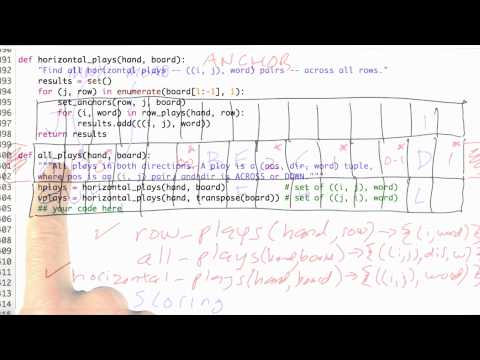 391 def horizontal_plays(hand, board):
392 "Find all horizontal plays -- ((i, j), word) pairs -- across all rows."
393 results = set()
394 for (j, row) in enumerate(board[1:-1], 1):
395 set_anchors(row, j, board)
396 for (i, word) in row_plays(hand, row):
397 results.add(((i, j), word))
398 return results
399
400 def all_plays(hand, board):
"""All plays in both directions. A play is a (pos, dir, word) tuple,
where pos is an (i, j) pair, and dir is ACROSS or DOWN."""
403 hplays = horizontal_plays(hand, board) # set of ((i, j), word)
404 vplays = horizontal_plays(hand, transpose(board)) # set of ((j, i), word)
405 ## your code here
ANCHOR
✓ row_plays(hand, row)→{(i,word)}
all_plays(hand,board)→{((i,j),dir,w)}
✓ horizontal_plays(hand,board)→{((i,j),word)}
Scoring